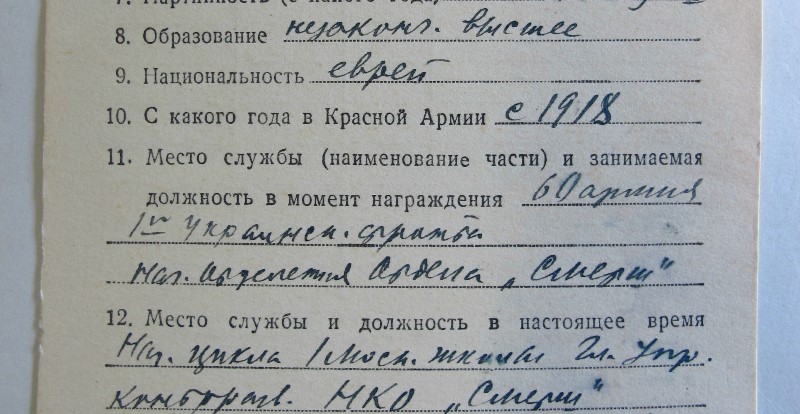 7. Партийность (с какого года)
8. Образование незаконч. высшее
9. Национальность еврей
10. С какого года в Красной Армии с 1918
11. Место службы (наименование части) и занимаемая
должность в момент награждения 60 армия
1го Украинск. фронта
Нач. отделения Отдела „Смерш"
12. Место службы и должность в настоящее время
Нач. цикла 1 Моск. школы Гл. Упр.
контрразв. НКО „Смерш"